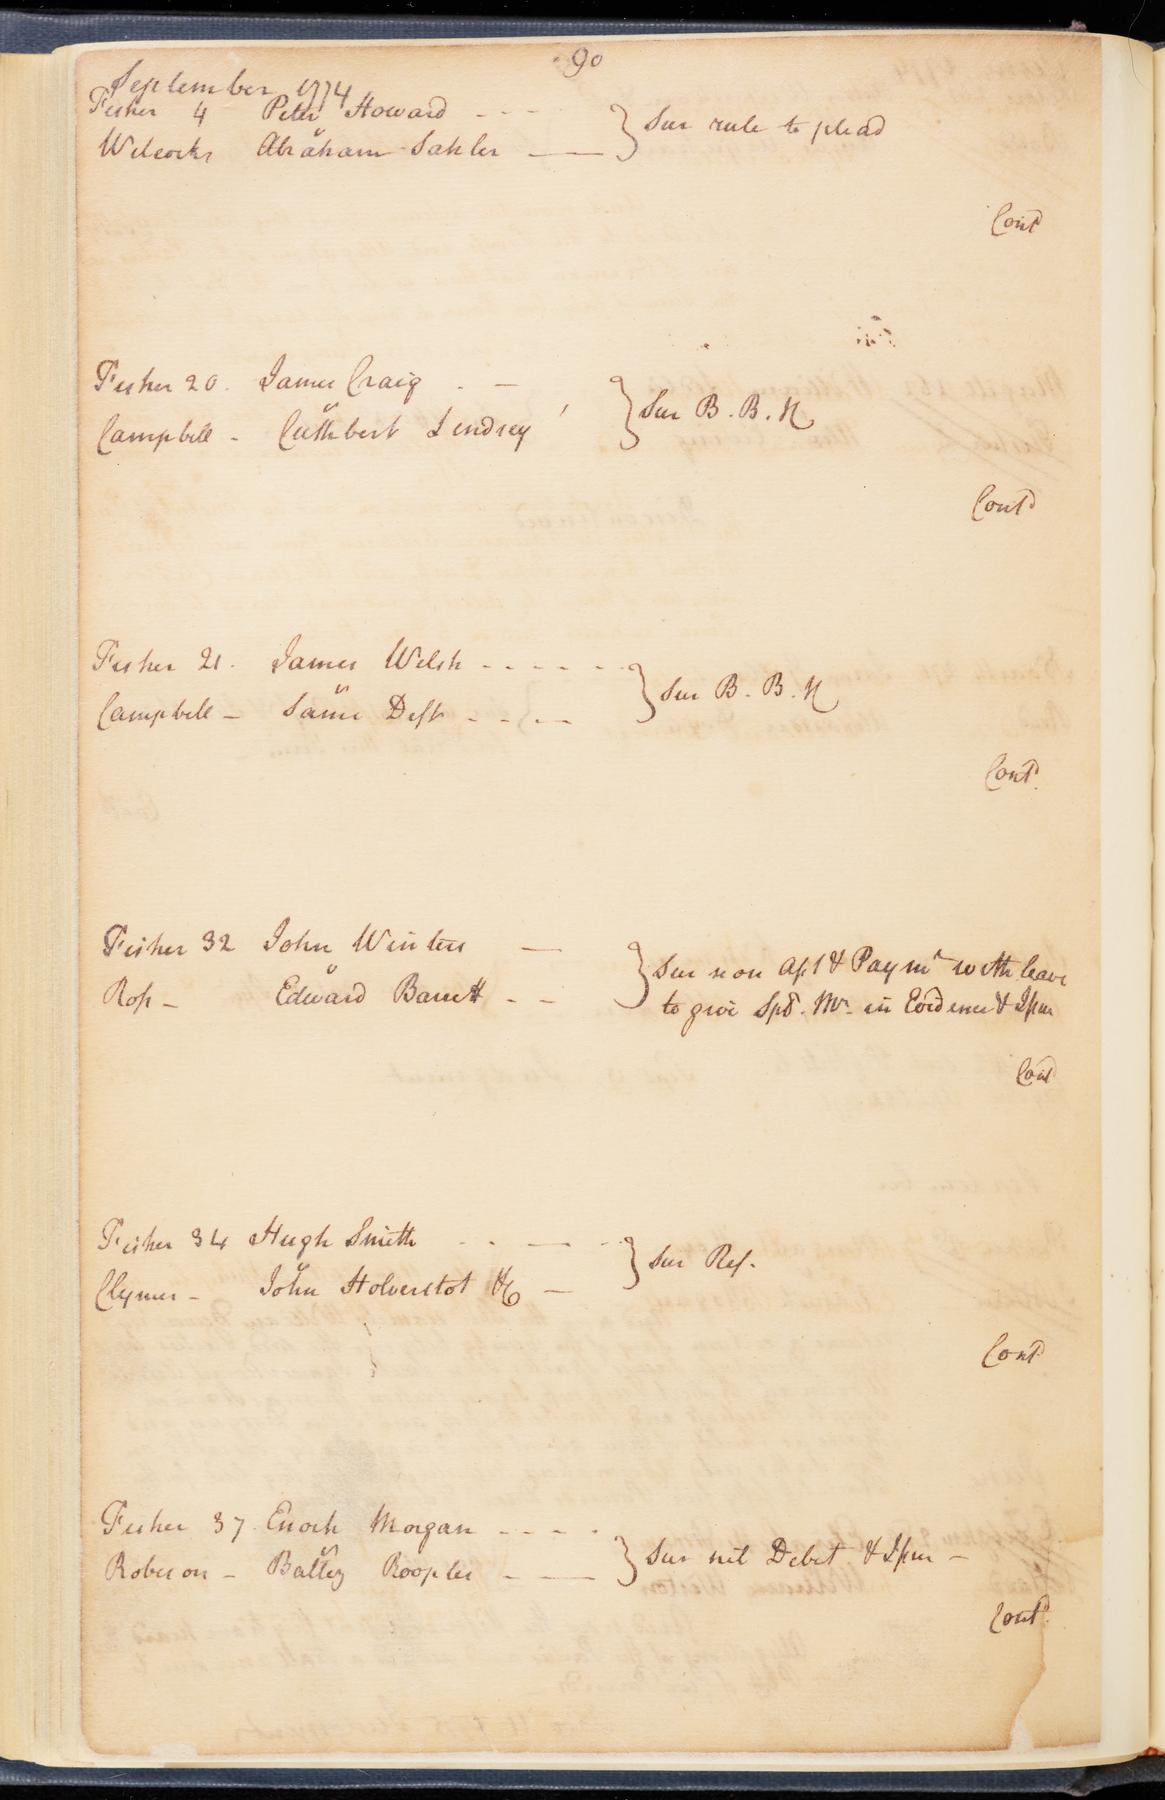 90
September 1774
Fisher 4 Peter Howard - - -
Wilcocks Abraham Sahler — } Sur rule to plead
Contd
Fisher 20. James Craig . —
Campbell - Cuthbert Lindsey } Sur B. B. N
Contd
Fisher 21. James Welsh - - - - - -
Campbell - Same Deft - - - - } Sur B. B. N
Contd
Fisher 32 John Winters —
Ross - Edward Barrett - - } Sur non Aspt & Paymt with leave
to give Spl. Mr. in Evidence & Issue
Contd
Fisher 34 Hugh Smith - - — - -
Clymer - John Holverstot — } Sur Ref.
Contd
Fisher 37. Enoch Morgan - - - -
Roberson - Baltzy Roopler - — } Sur nil Debet & Issue —
Contd